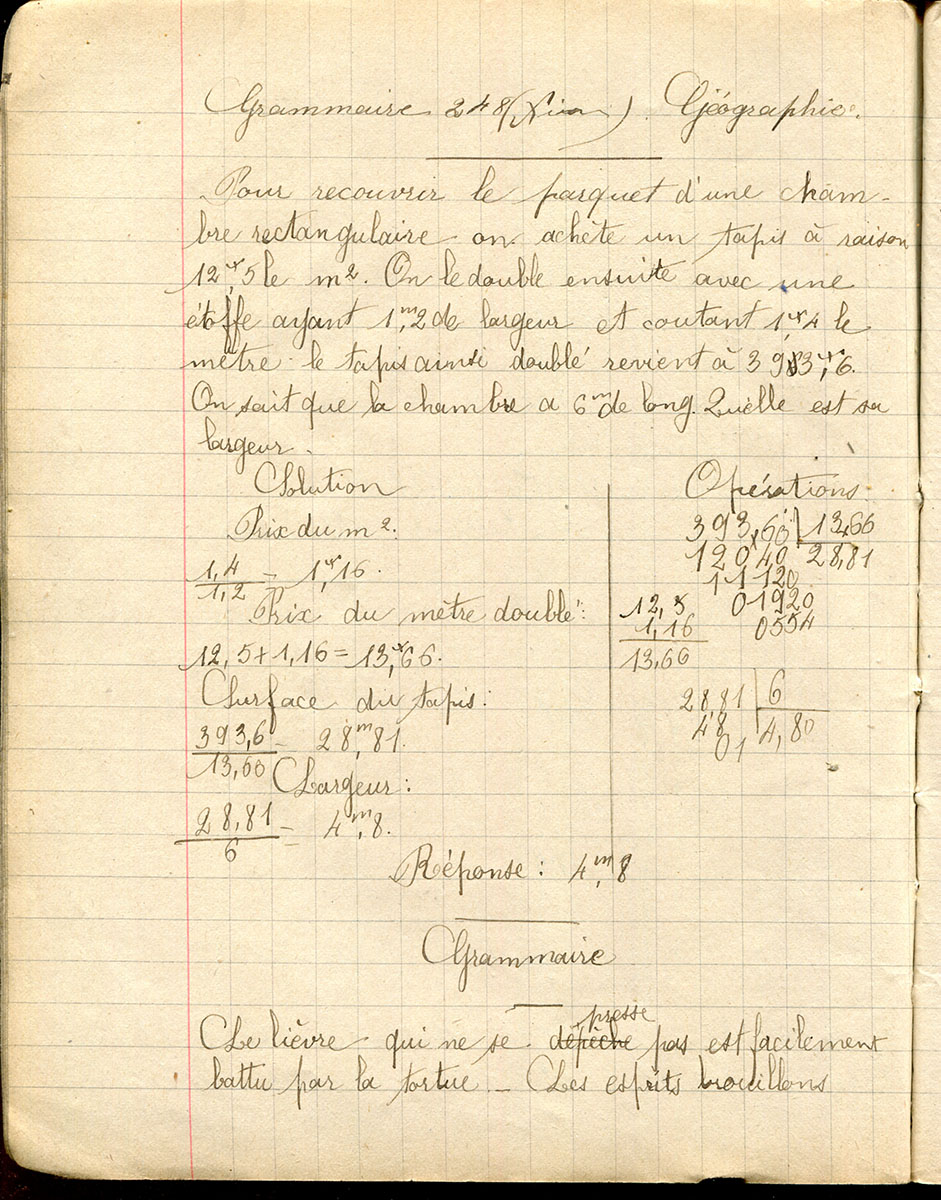 Grammaire 248 (Fin). Géographie.
Pour recouvrir le parquet d'une cham-
bre rectangulaire on achète un tapis à raison
12fr,5 le m2. On le double ensuite avec une
étoffe ayant 1m,2 de largeur et coutant 1fr,4 le
mètre le tapis ainsi doublé revient à 393fr,6.
On sait que la chambre a 6m de long. Quelle est sa
largeur.
Solution
Opérations
Prix du m2:
1,4/1,2 = 1fr,16.
Prix du mètre doublé:
12,5 + 1,16 = 13fr,66.
Surface du tapis:
393,6/13,66 = 28m,81.
Largeur:
28,81/6 = 4m,8.
393,60 | 13,66
12040 28,81
11120
01920
0554
12,5
1,16
13,66
28,81 | 6
48 4,80
01
Réponse: 4m,8
Grammaire
presse
Le lièvre qui ne se dépêche pas est facilement
battu par la tortue _ Les esprits brouillons